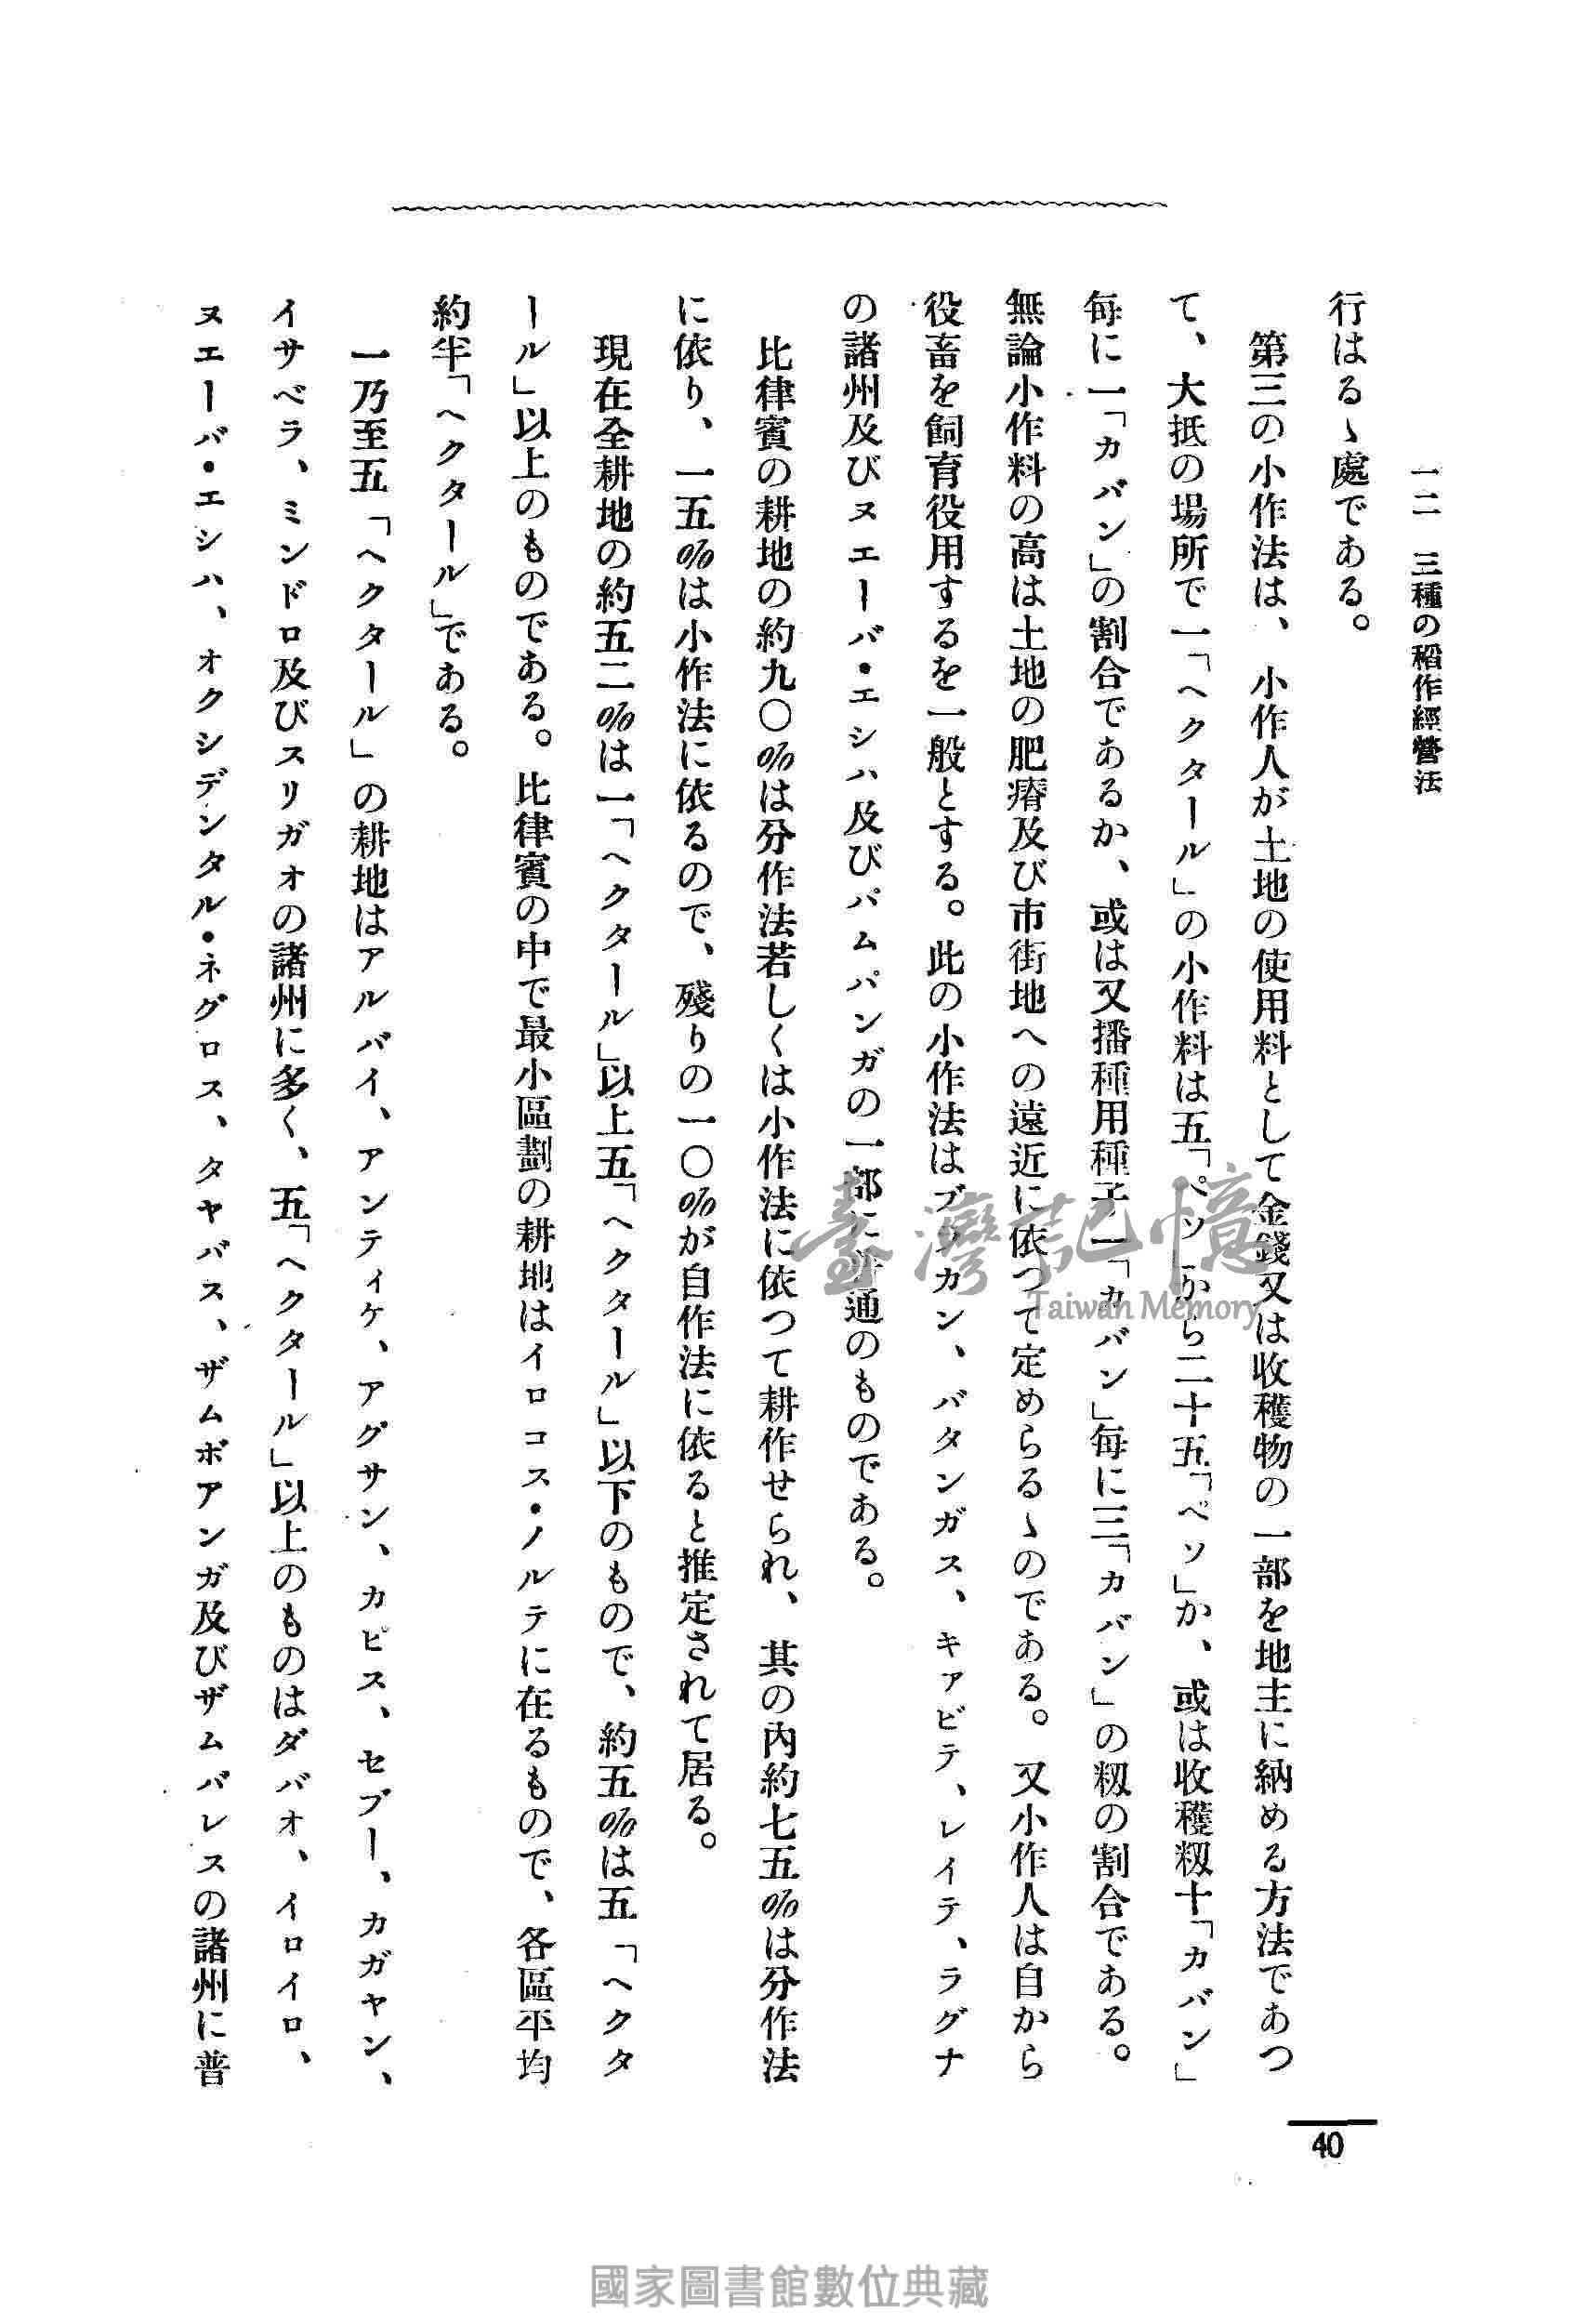 一二 三種の稻作經營法
行はるゝ處である。
第三の小作法は、小作人が土地の使用料として金錢又は收穫物の一部を地主に納める方法であつ
て、大抵の場所で一「ヘクタール」の小作料は五「ペソ」から二十五「ペソ」か、或は收穫籾十「カバン」
每に一「カバン」の割合であるか、或は又播種用種子一「カバン」每に三「カバン」の籾の割合である。
無論小作料の高は土地の肥瘠及び市街地への遠近に依つて定めらるゝのである。又小作人は自から
役畜を飼育役用するを一般とする。此の小作法はブラカン、バタンガス、キァビテ、レイテ、ラグナ
の諸州及びヌエーバ・エシハ及びパムパンガの一部に普通のものである。
比律賓の耕地の約九〇％は分作法若しくは小作法に依つて耕作せられ、其の內約七五％は分作法
に依り、一五％は小作法に依るので、殘りの一〇％が自作法に依ると推定されて居る。
現在全耕地の約五二％は一「ヘクタール」以上五「ヘクタール」以下のもので、約五％は五「ヘクタ
ール」以上のものである。比律賓の中で最小區劃の耕地はイロコス・ノルテに在るもので、各區平均
約半「ヘクタール」である。
一乃至五「ヘクタール」の耕地はアルバイ、アンティケ、アグサン、カピス、セブー、カガヤン、
イサベラ、ミンドロ及びスリガオの諸州に多く、五「ヘクタール」以上のものはダバオ、イロイロ、
ヌエーバ・エシハ、オクシデンタル・ネグロス、タヤバス、ザムボアンガ及びザムバレスの諸州に普
40
臺灣記憶
Taiwan Memory
國家圖書館數位典藏